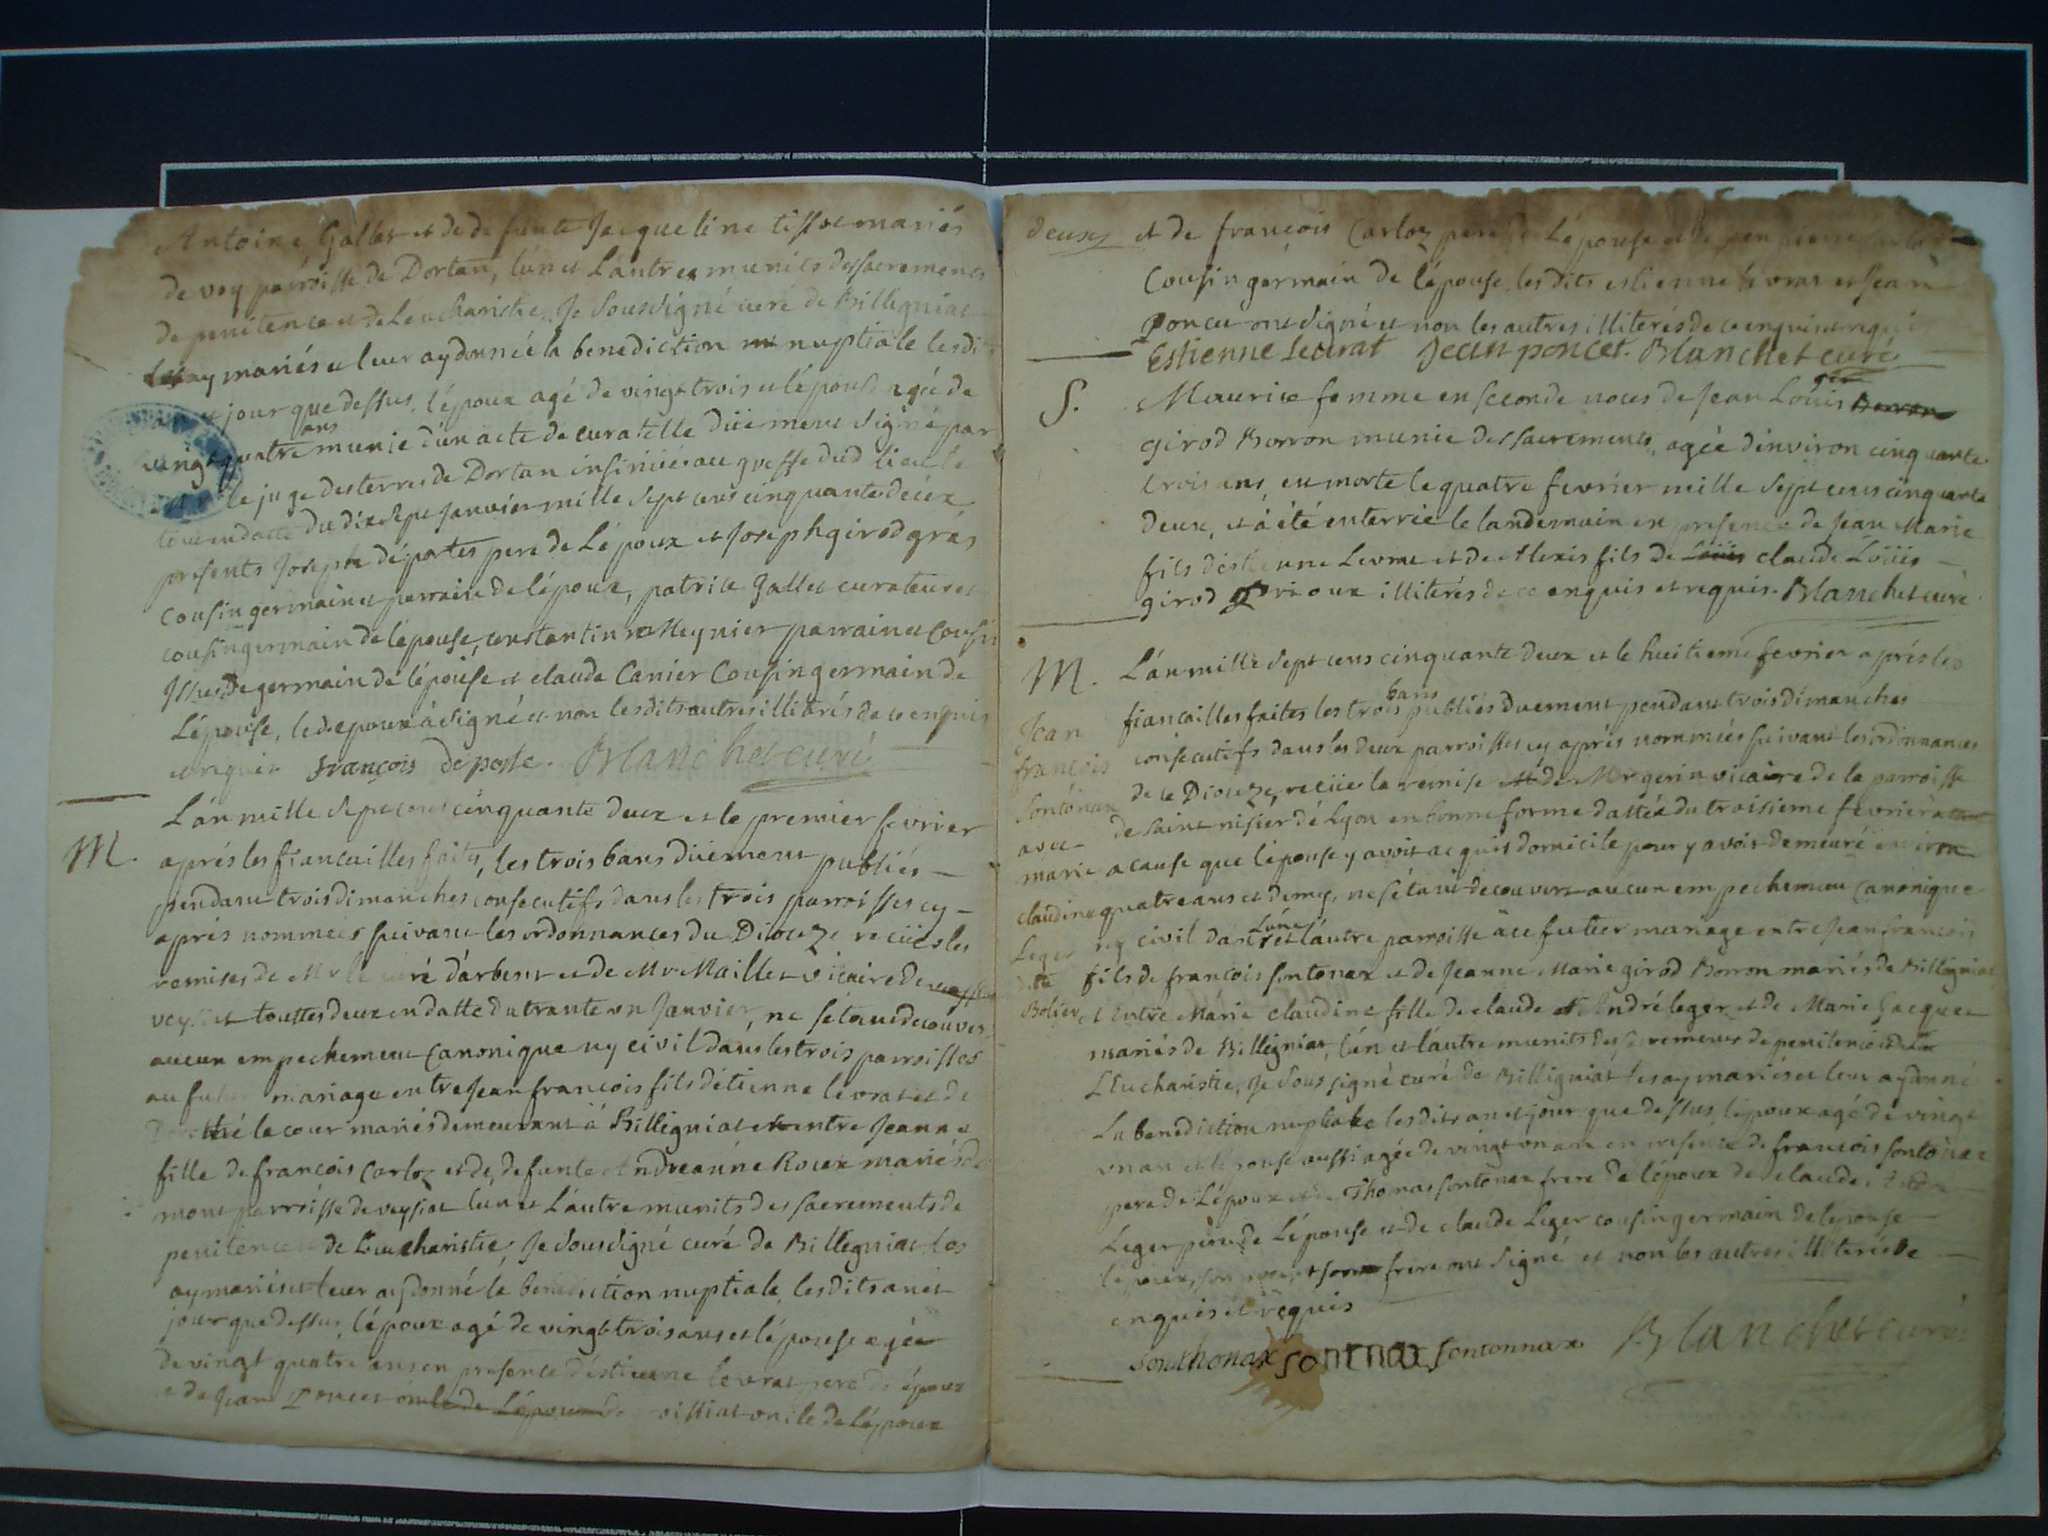 Antoine Gallet et de defunte Jacqueline tissot mariés
de voy parroisse de Dortan, l'un et L'autre munits des sacrements
de penitence et de Leucharistie, Je soussigné curé de Billigniat
Les ay mariés et leur ay donné la benediction nuptiale les dits
jour que dessus, l'époux agé de vingt trois et lépouse agée de
ans
vingt quatre munie d'un acte de curatelle düement signé par
le juge des terres de Dortan insinüé au greffe dud lieu le
en datte du dix sept Janvier mille sept cens cinquante deux
presents Joseph déportes pere de Lépoux et Joseph girod gras
cousin germain et parrain de lépoux, patrice Gallet curateur et
cousin germain de lépouse, constantin Meynier parrain et cousin
Issus de germain de lépouse et claude Canier Cousin germain de
Lépouse, led epoux à signé et non les dits autres illiterés de ce enquis
et requis françois déporte. Blanchet curé
L'an mille sept cens cinquante deux et le premier fevrier
M. aprés les fiancailles faites, les trois bans düement publiés
pendant trois dimanches consecutifs dans les trois parroisses cy
aprés nommées suivant les ordonnances du Dioceze recües les
remises de Mr le curé d'arbent et de Mr Maillet vicaire de
veysiat touttes deux en datte du trante un Janvier, ne sétant decouvert
aucun empechement canonique ny civil dans les trois parroisses
au futur mariage entre Jean françois fils détienne levrat et de
lacour mariés demeurant à Billigniat et entre Jeanne
fille de françois Carloz et de defunte Andréanne Roux mariés de
mons parroisse de veysiat lun et L'autre munits des sacrements de
penitence et de Leucharistie, Je soussigné curé de Billigniat les
ay mariés et leur ay donné la benediction nuptiale, les dits an et
jour que dessus, l'époux agé de vingt trois ans et lépouse agée
de vingt quatre ans en presence d'éstienne levrat pere de époux
et de Jean Poncet oncle de Lépoux de oissiat oncle de lépoux
deux et de françois Carloz pere de Lépouse et de pierre
Cousin germain de lépouse, les dits estienne levrat et Jean
poncet ont signé et non les autres illiterés de ce enquis et requis
Estienne Levrat Jean poncet. Blanchet curé
S. Maurice femme en seconde noces de Jean Loüis
girod Borron munie des sacrements, agée d'environ cinquante
trois ans, est morte le quatre fevrier mille sept cens cinquante
Deux, et à été enterrée le landemain en presence de Jean Marie
fils d'éstienne Levrat et de Alexis fils de Loüis claude Loüis
girod illiterés de ce enquis et requis. Blanchet curé
M. L'an mille sept cens cinquante deux et le huitieme fevrier aprés les
bans
fiancailles faites les trois publiés duement pendant trois dimanches
Jean
consecutifs dans les deux parroisses cy aprés nommées suivant les ordonnances
françois
de ce Dioceze, recüe la remise de Mr gerin vicaire de la parroisse
sontonax
de saint nisier dé Lyon en bonne forme dattée du troisieme fevrier
avec
a cause que lépouse y avoit acquis domicile pour y avoir demeuré environ
marie
claudine quatre ans et demy, ne sétant decouvert aucun empechement canonique
Leger ny civil dans l'une et l'autre parroisse à ce futur mariage entre Jean françois
fils de françois sontonax et de Jeanne Marie girod Borron mariés de Billigniat
Et Entre Marie claudine fille de claude André leger et de Marie Jacquet
mariés de Billigniat, l'un et l'autre munits des sacrements de penitence et de
LEucharistie, Je soussigné curé de Billigniat les ay mariés et leur ay donné
La benediction nuptiale les dits an et jour que dessus, l'époux agé de vingt
un an et lépouse aussi agée de vingt un an en presence de françois sontonax
pere de Lépoux et de Thomas sontonax frere de lépoux de claude André
Leger pere de Lépouse et de claude Leger cousin germain de lépouse
lépoux, son pere et son frere ont signé et non les autres illiterés de
enquis et requis
Sonthonax sontnax sontonnax Blanchet curé